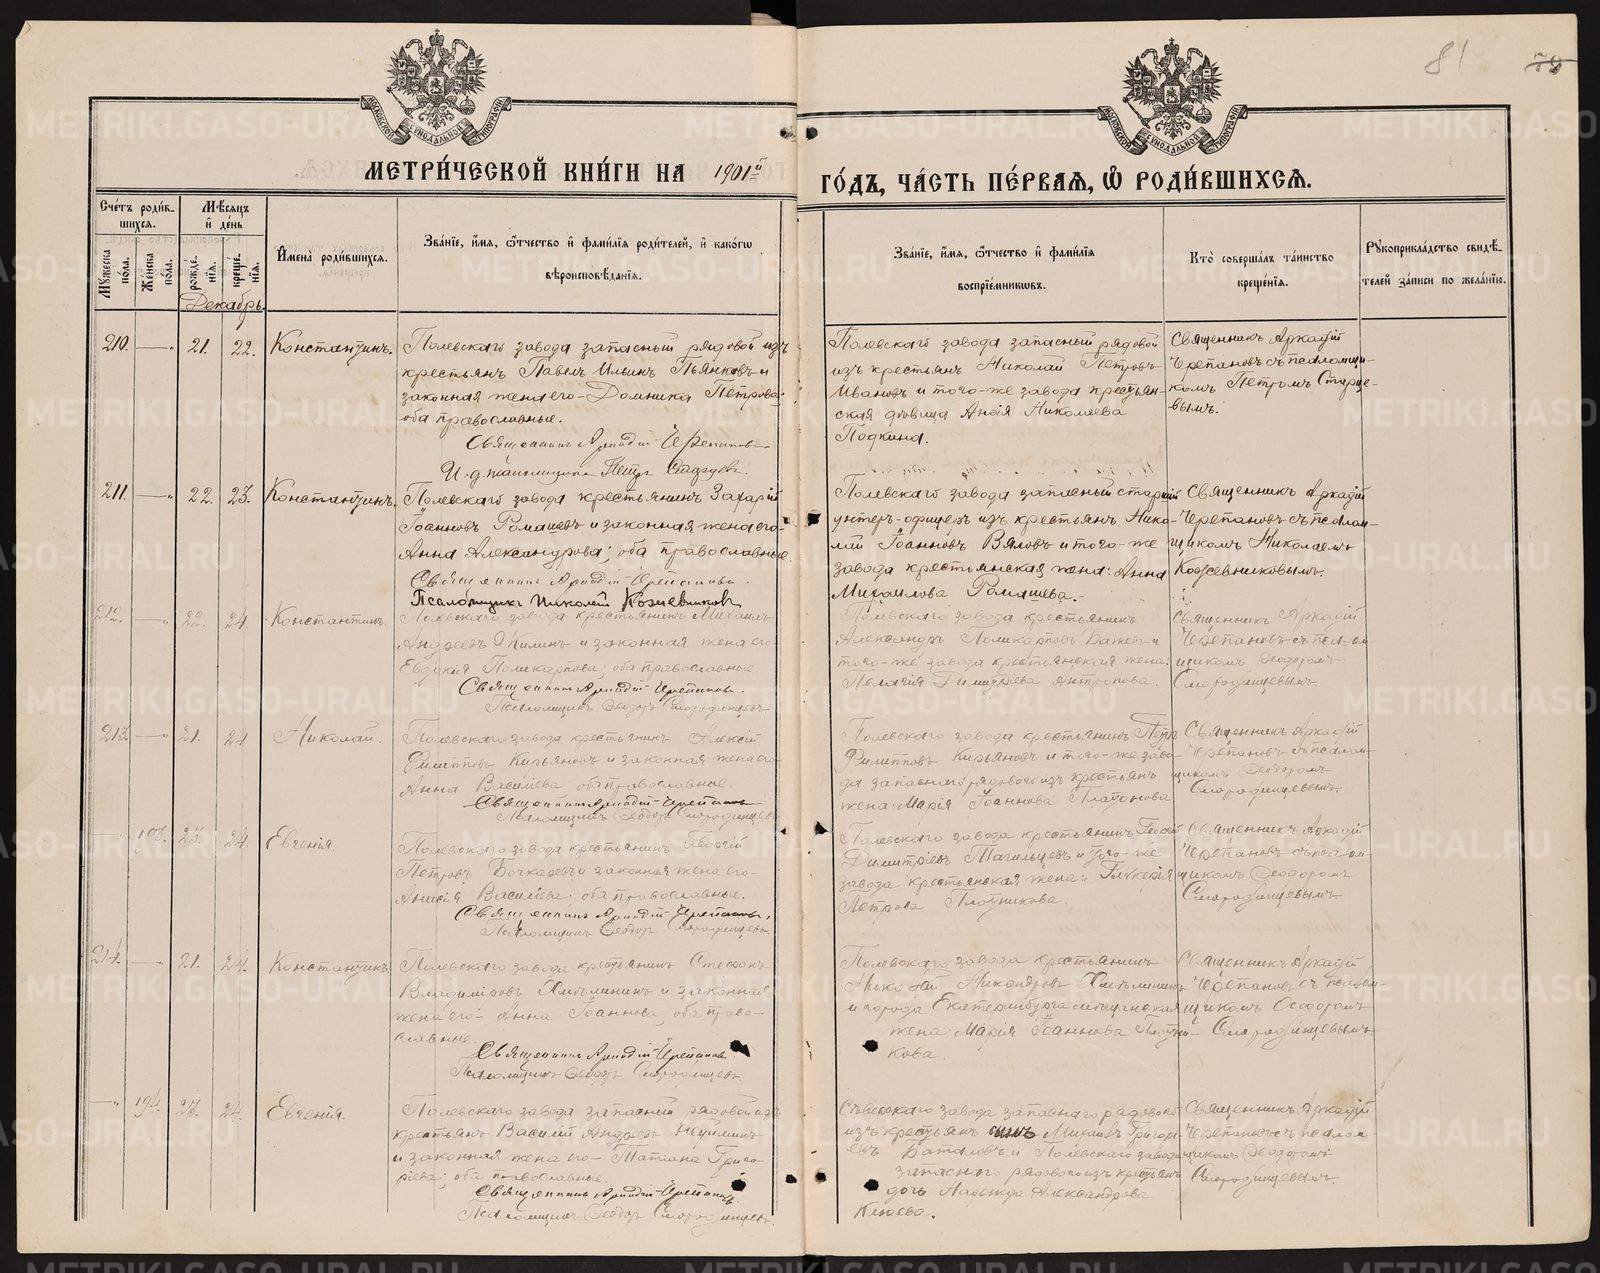 81
79
МЕТРИ́ЧЕСКОЙ КНИ́ГИ НА 1901й
ГО́ДЪ, ЧА́СТЬ ПЕ́РВАЯ, Ѽ РОДИ́ВШИХСЯ.
Сче́тъ роди́в-
шихся.
Мꙋ́жеска по́ла.
Же́нска по́ла.
Мѣ́сяцъ и҆ де́нь
рожде́-нїя.
креще́-нїя.
Имена̀ роди́вшихся.
Зва́нїе, и҆́мя, ѻ҆́тчество и҆ фами́лїя роди́телей, и҆ како́гѡ
вѣроисповѣ́данїя.
Зва́нїе, и҆́мя, ѻ҆́тчество и҆ фами́лїя
воспрїе́мникѡвъ.
Кто̀ соверша́лъ та́инство
креще́нїя.
Рꙋкоприкла́дство свидѣ́-
телей за́писи по жела́нїю.
Декабрь.
210. — " 21. 22. Константинъ.
Полевскаго завода запасный рядовой изъ
крестьянъ Павелъ Ильинъ Пьянковъ и
законная жена его Домника Петрова;
оба православные.
Священникъ Аркадій Черепановъ
И. д. псаломщика Петръ Старцевъ.
Полевскаго завода запасный рядовой
изъ крестьянъ Николай Петровъ
Ивановъ и того-же завода крестьян-
ская дѣвица Анфія Николаева
Подкина.
Священникъ Аркадій
Черепановъ съ псаломщи-
комъ Петромъ Старце-
вымъ.
211. — " 22. 23. Константинъ.
Полевскаго завода крестьянинъ Захарій
Іоанновъ Ромашевъ и законная жена его
Анна Александрова; оба православные.
Священникъ Аркадій Черепановъ.
Псаломщикъ Николай Кожевниковъ
Полевскаго завода запасный старшій
унтеръ-офицеръ изъ крестьянъ Нико-
лай Іоанновъ Вяловъ и того-же
завода крестьянская жена: Анна
Михаилова Ромашева.
Священникъ Аркадій
Черепановъ съ псалом-
щикомъ Николаемъ
Кожевниковымъ.
212. — " 22. 24. Константинъ.
Полевскаго завода крестьянинъ Михаилъ
Андреевъ и законная жена его
Евдокія Поликарпова; оба православные
Священникъ Аркадій Черепановъ.
Псаломщикъ Ѳеодоръ Смородинцевъ
Полевскаго завода крестьянинъ
Александръ Поликарповъ Бажевъ и
того-же завода крестьянская жена:
Пелагія Димитріева Антропова.
Священникъ Аркадій
Черепановъ съ псалом-
щикомъ Ѳеодоромъ
Смородинцевымъ.
213. — " 21. 24. Николай.
Полевскаго завода крестьянинъ Алексій
Филипповъ Кирьяновъ и законная жена его
Анна Василіева оба православные.
Священникъ Аркадій Черепановъ
Псаломщикъ Ѳеодоръ Смородинцевъ
Полевскаго завода крестьянинъ Петръ
Филипповъ Кирьяновъ и того-же заво-
да запаснаго рядового изъ крестьянъ
жена: Марія Іоаннова Платонова.
Священникъ Аркадій
Черепановъ съ псалом-
щикомъ Ѳеодоромъ
Смородинцевымъ.
— " 193. 23. 24. Евгенія.
Полевскаго завода крестьянинъ Георгій
Петровъ Бочкаревъ и законная жена его
Анисія Василіева; оба православные.
Священникъ Аркадій Черепановъ.
Псаломщикъ Ѳеодоръ Смородинцевъ
Полевскаго завода крестьянинъ
Димитріевъ Тагильцевъ и того-же
завода крестьянская жена: Гликерія
Петрова Плотникова.
Священникъ Аркадій
Черепановъ съ псалом-
щикомъ Ѳеодоромъ
Смородинцевымъ.
214. — " 21. 24. Константинъ.
Полевскаго завода крестьянинъ Стефанъ
Владиміровъ Хмѣлининъ и законная
жена его Анна Іоаннова, оба право-
славные.
Священникъ Аркадій Черепановъ
Псаломщикъ Ѳеодоръ Смородинцевъ.
Полевскаго завода крестьянинъ
Николай Никандровъ Хмѣлининъ
и города Екатеринбурга мѣщанская
жена: Марія Іоаннова Плотни-
кова.
Священникъ Аркадій
Черепановъ съ псалом-
щикомъ Ѳеодоромъ
Смородинцевымъ.
— " 194. 23. 24. Евгенія.
Полевскаго завода запасный рядовой изъ
крестьянъ Василій Андреевъ
и законная жена его Татіана Григо-
ріева; оба православные.
Священникъ Аркадій Черепановъ
Псаломщикъ Ѳеодоръ Смородинцевъ.
Сѣверскаго завода запаснаго рядового
изъ крестьянъ сынъ Михаилъ Григорі-
евъ Баталовъ и Полевскаго завода
запаснаго рядового изъ крестьянъ
дочь Надежда Александрова
Клюева.
Священникъ Аркадій
Черепановъ съ псалом-
щикомъ Ѳеодоромъ
Смородинцевымъ.
METRIKI.GASO-URAL.RU